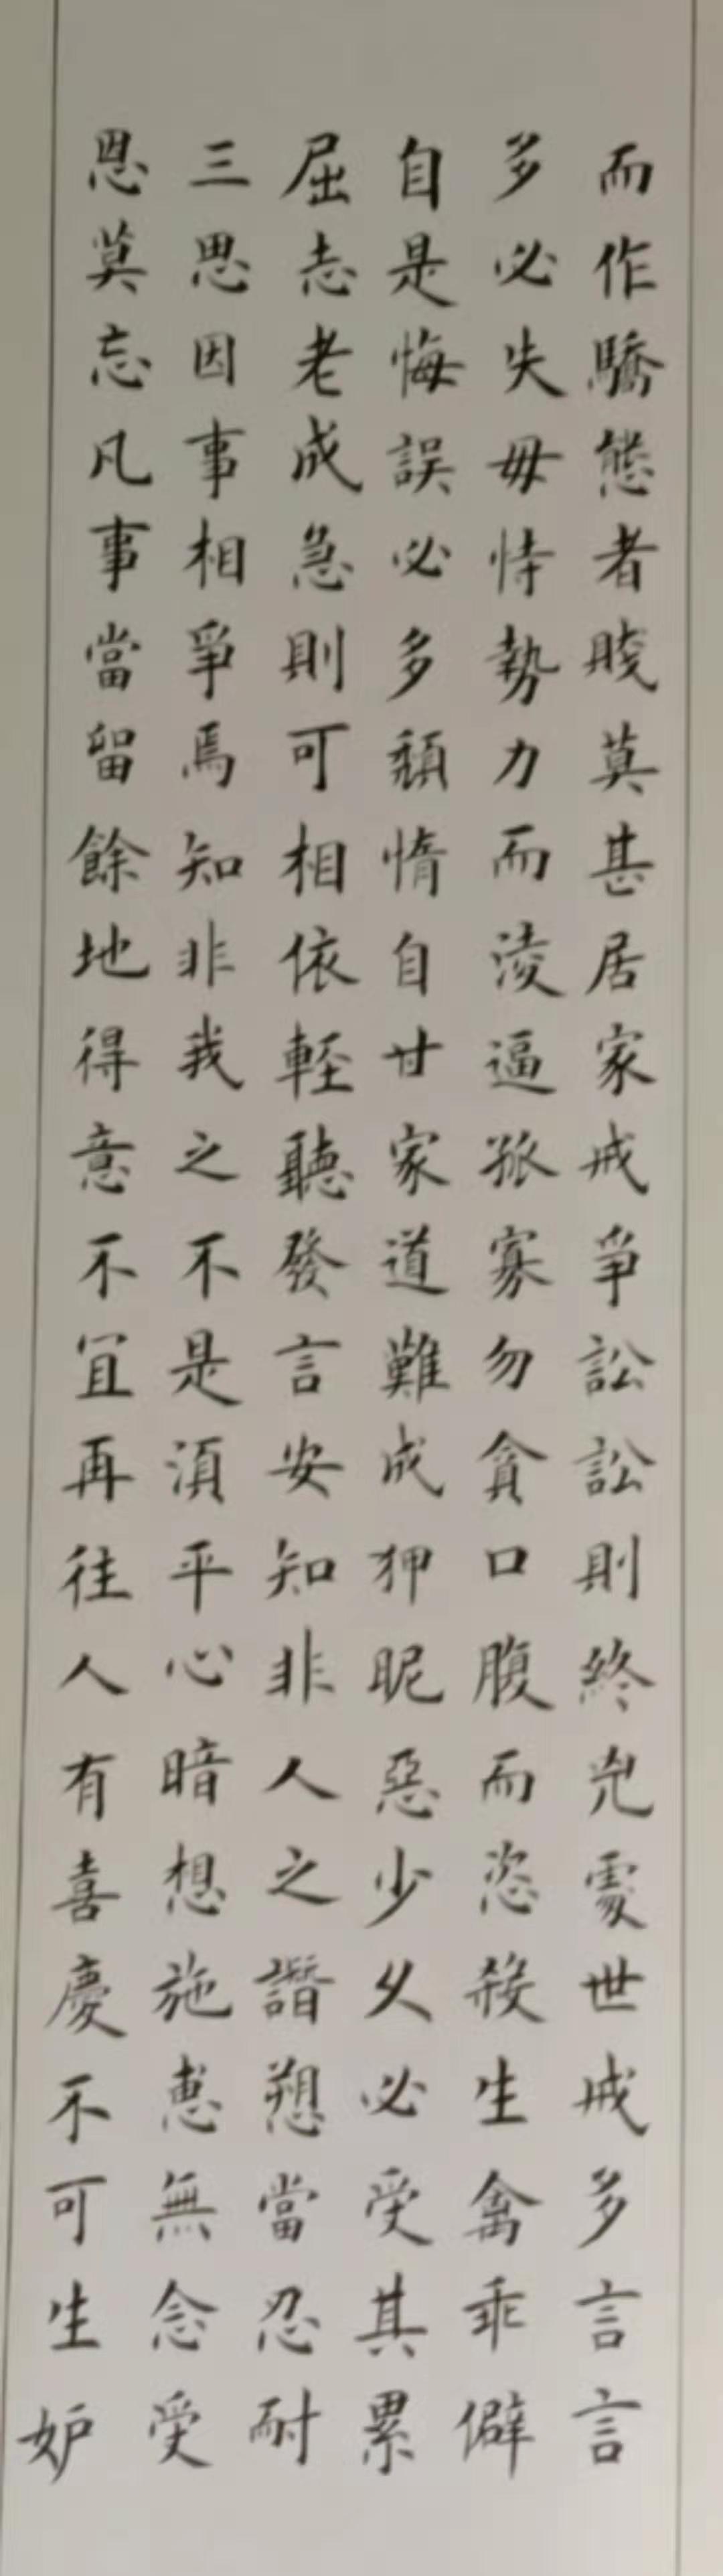 而作驕態者賤莫甚居家戒爭訟訟則終凶處世戒多言言
多必失毋恃勢力而淩逼孤寡勿貪口腹而恣殺生禽乖僻
自是悔誤必多頹惰自甘家道難成狎昵惡少久必受其累
屈志老成急則可相依輕聽發言安知非人之譖愬當忍耐
三思因事相爭焉知非我之不是須平心暗想施惠無念受
恩莫忘凡事當留餘地得意不宜再往人有喜慶不可生妒